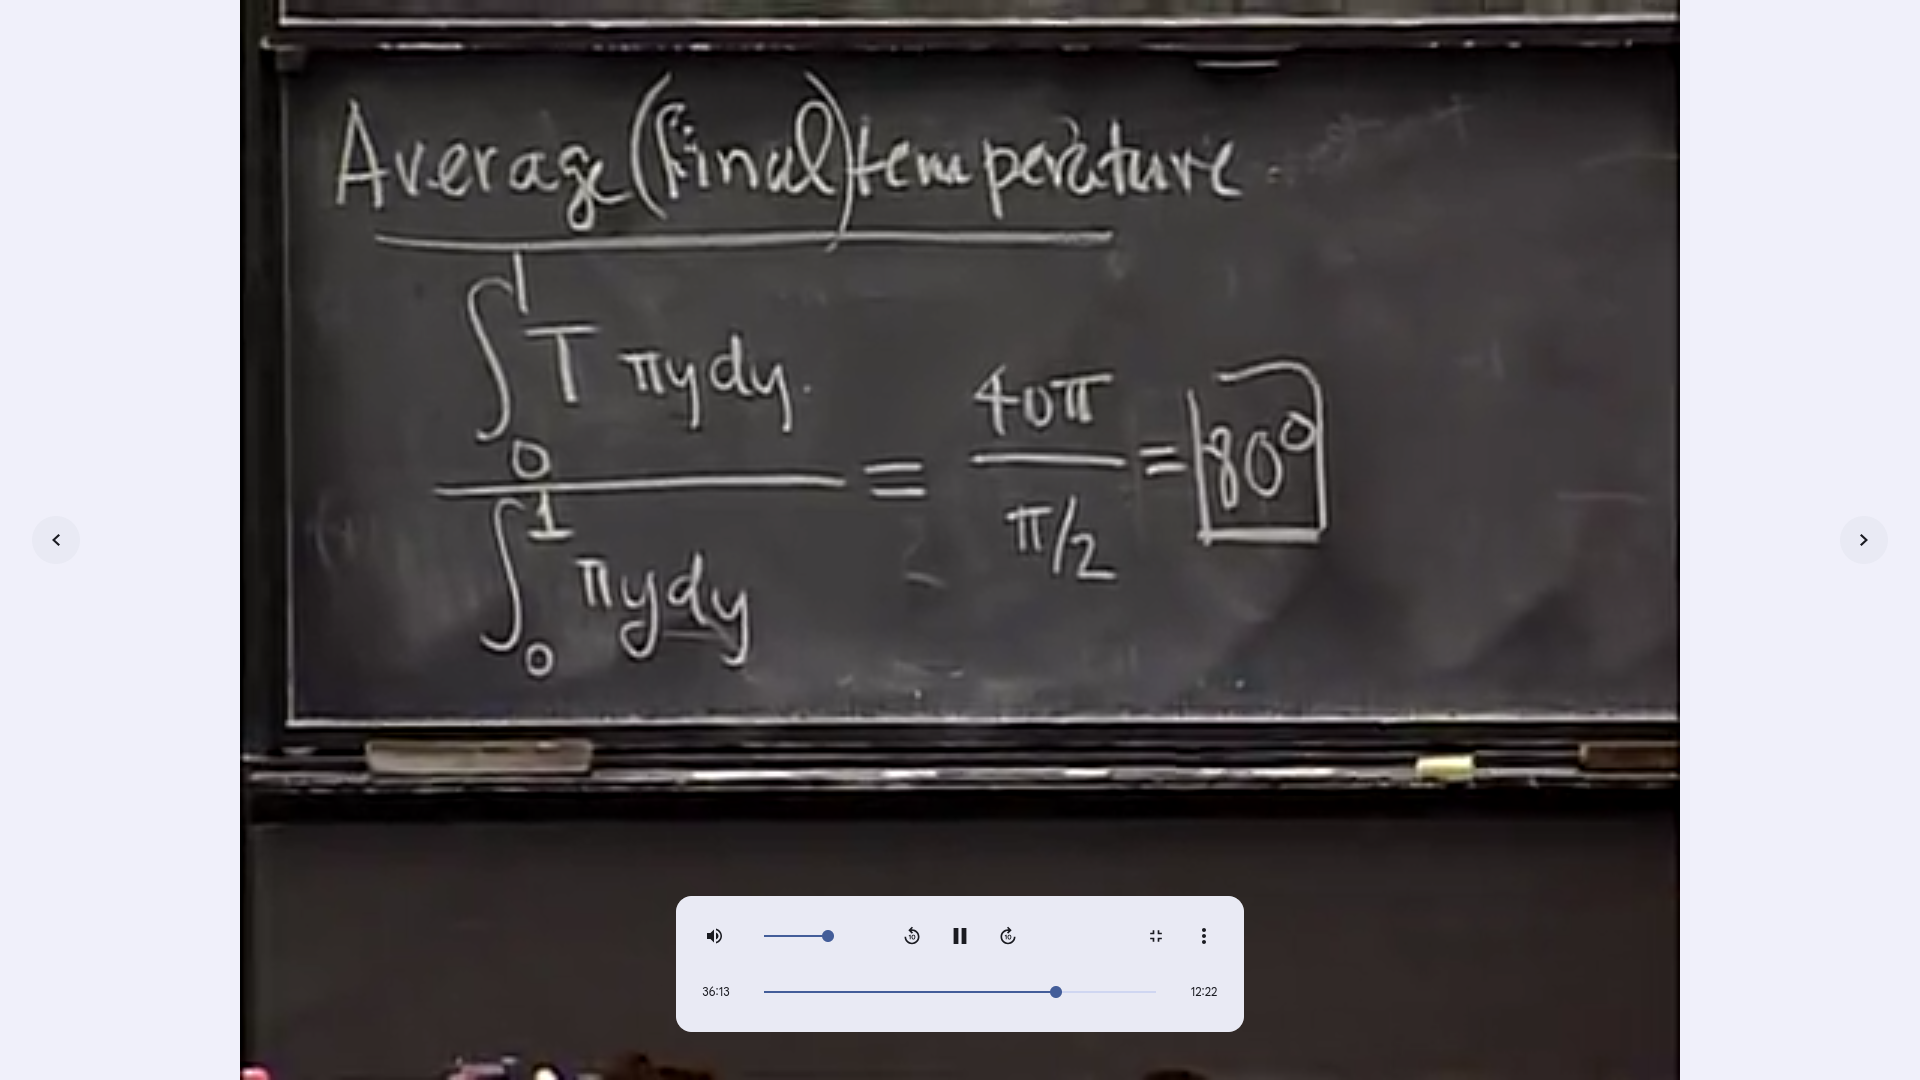 Average (final) temperature
∫₀¹ T π y dy
――― = 40π / (π/2) = 80°
∫₀¹ π y dy
36:13
12:22